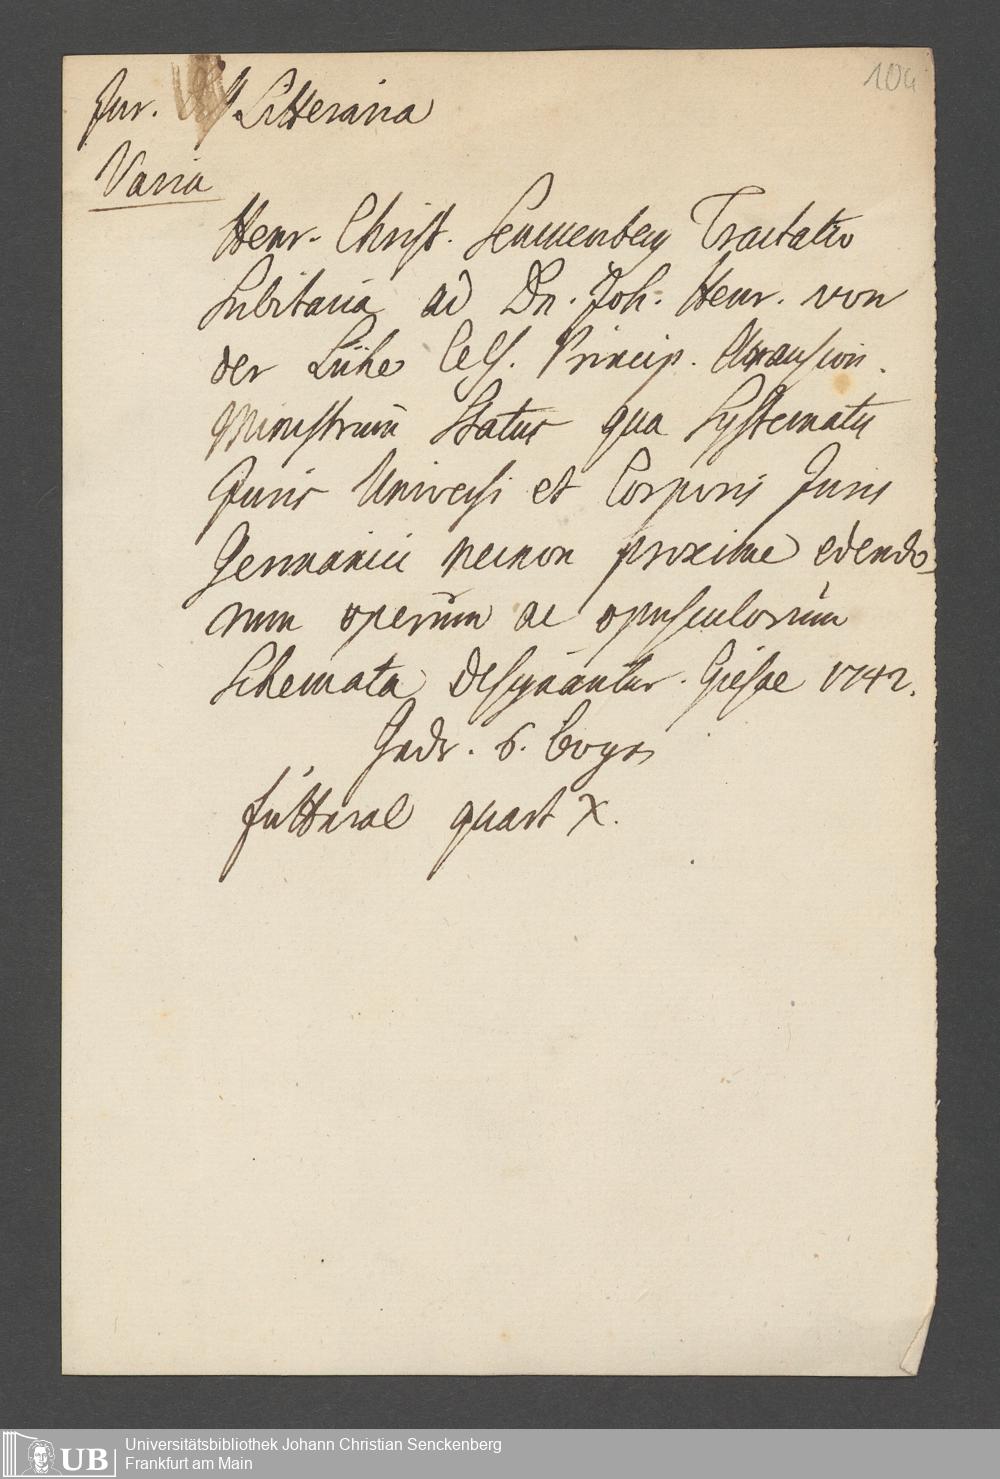 104
Jur. Litteraria
Varia
Henr. Christ. Senckenberg Tractatio
Subitaria ad Dn. Joh. Henr. von
der Lühe Cels. Princip. Arausion.
Ministrum Status qua Systematis
Juris Universi et Corporis Juris
Germanici necnon proxime edendo
rum operum ac opusculorum
Schemata designantur. Giessae 1742.
6. Bogen
Futteral quart X.
UB
Universitätsbibliothek Johann Christian Senckenberg
Frankfurt am Main